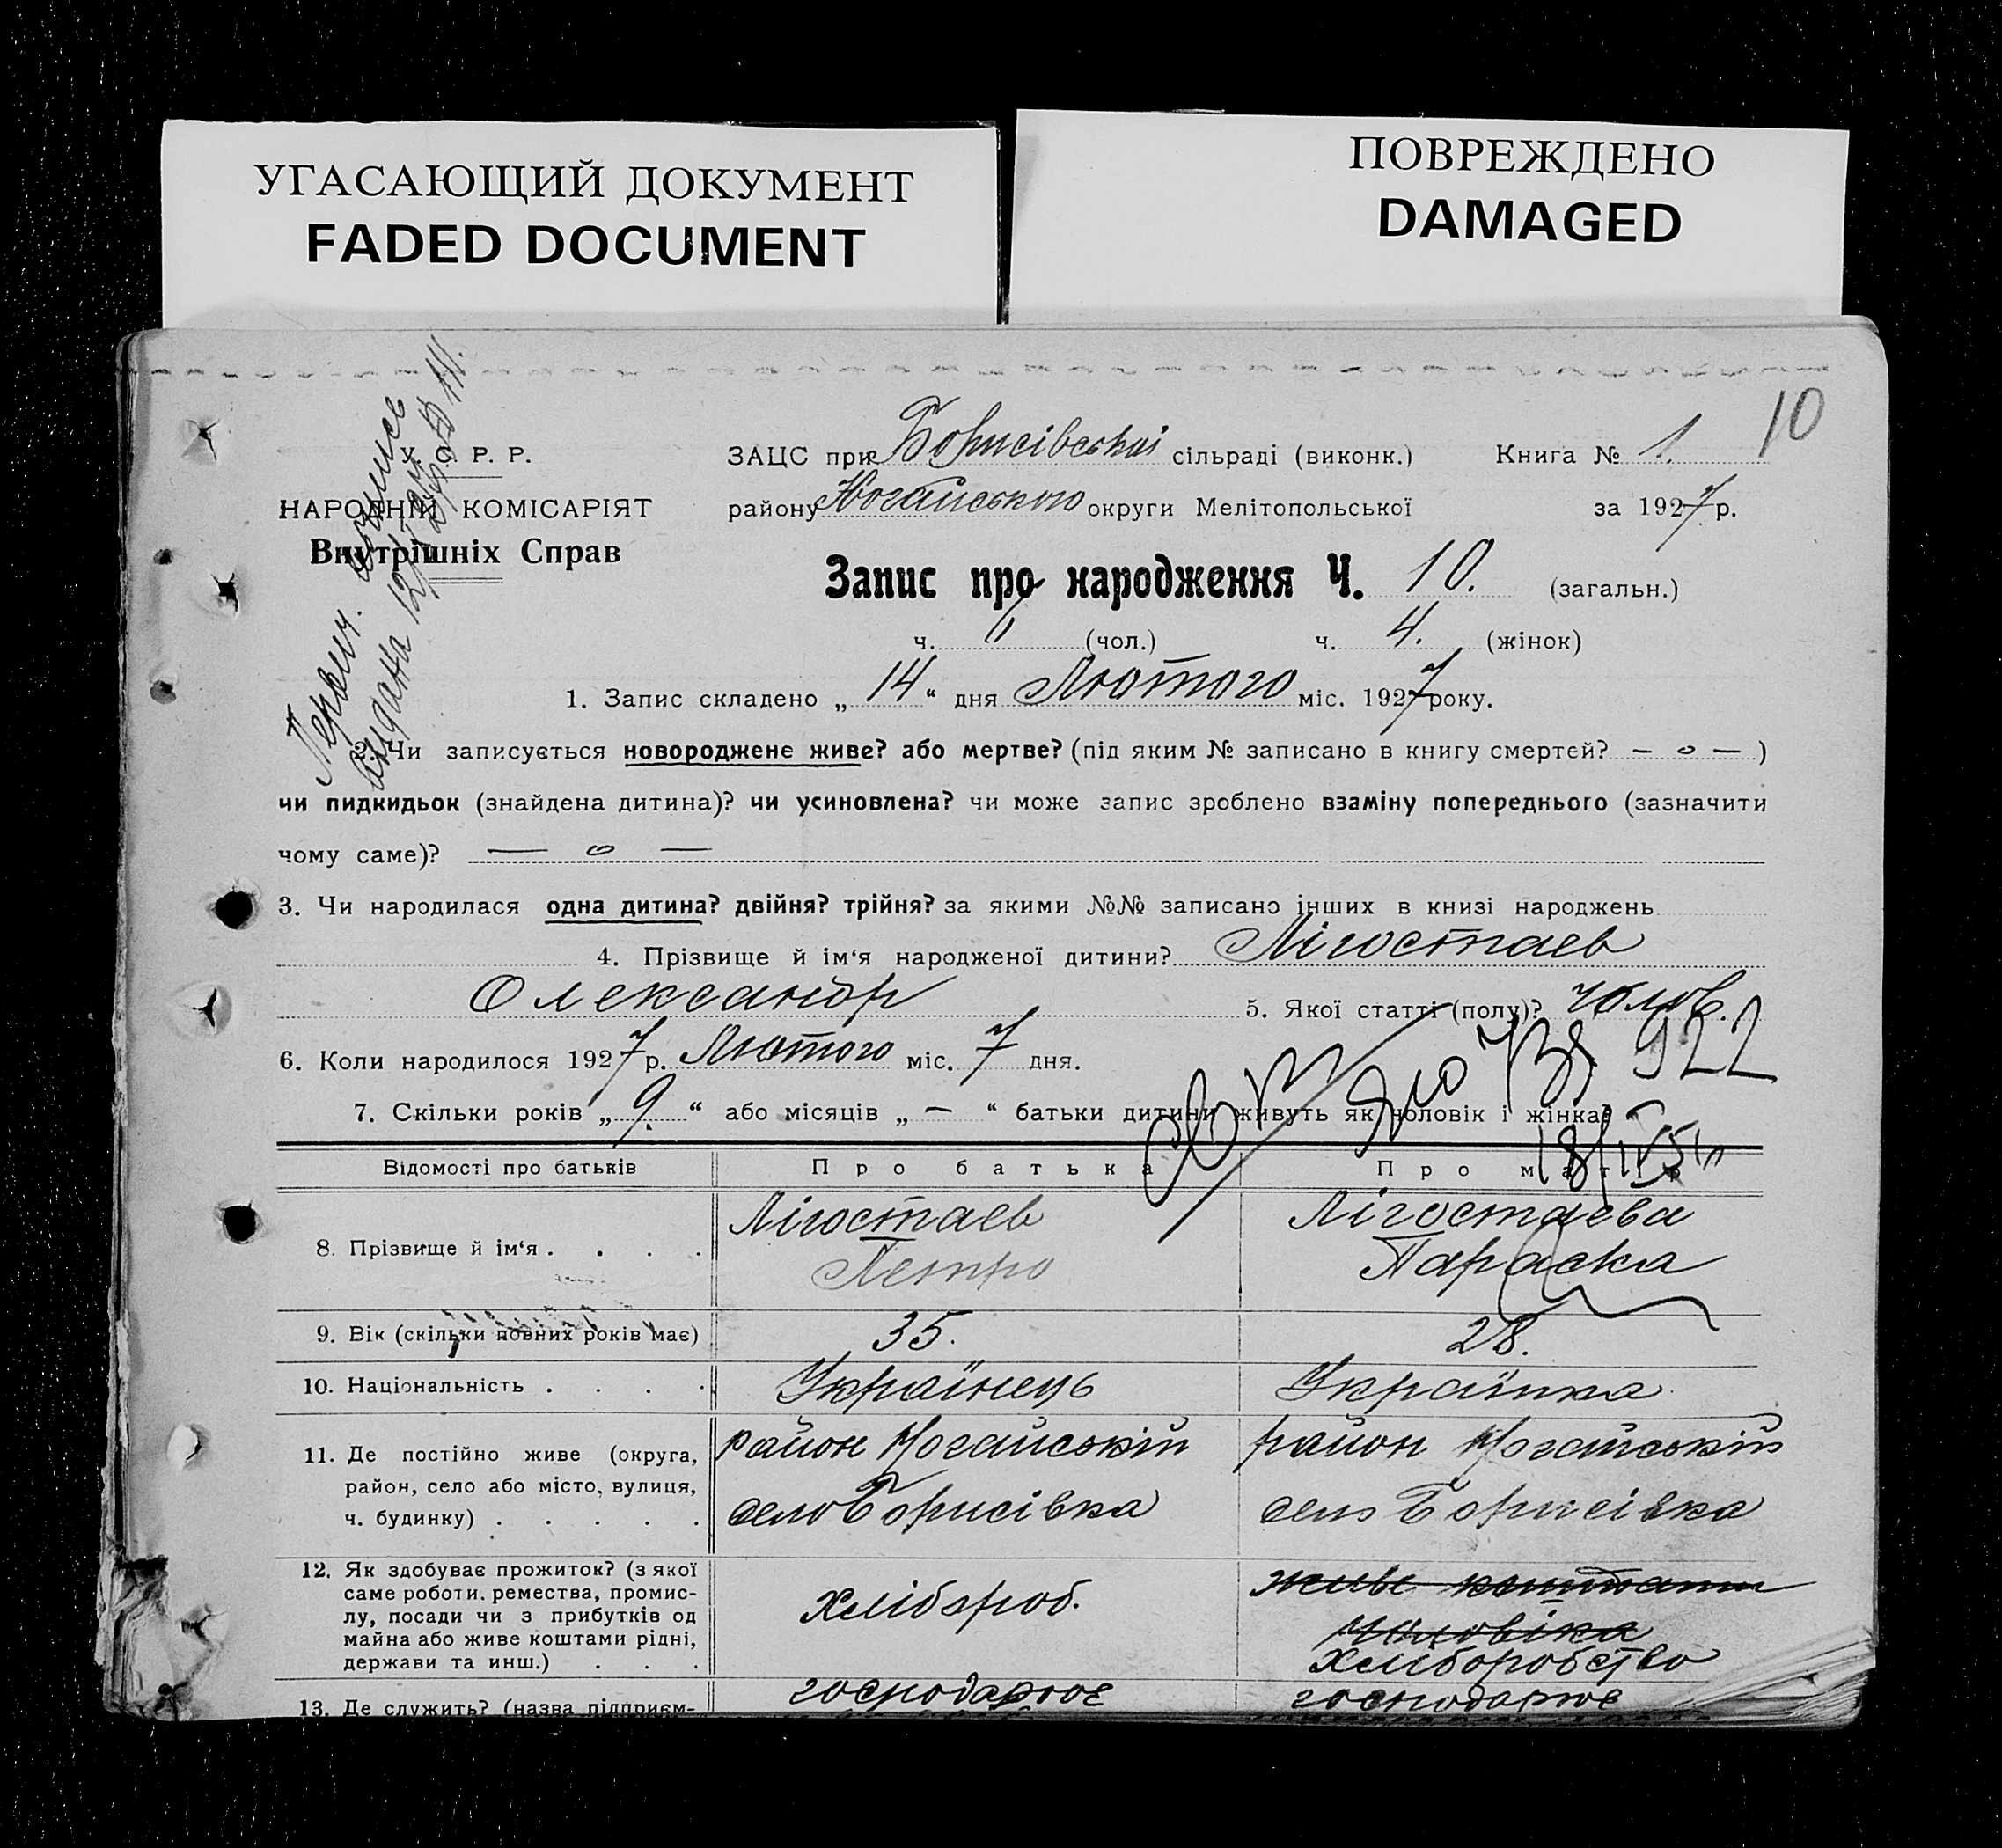 УГАСАЮЩИЙ ДОКУМЕНТ
FADED DOCUMENT
ПОВРЕЖДЕНО
DAMAGED
10
У. С. Р. Р.
НАРОДНІЙ КОМІСАРІЯТ
Внутрішніх Справ
ЗАЦС при Борисівській сільраді (виконк.) Книга № 1.
району Ногайського округи Мелітопольської за 1927 р.
Запис про народження Ч. 10. (загальн.)
ч. 6 (чол.) ч. 4. (жінок)
1. Запис складено „14“ дня Лютого міс. 1927 року.
2. Чи записується новороджене живе? або мертве? (під яким № записано в книгу смертей? — о — )
чи пидкидьок (знайдена дитина)? чи усиновлена? чи може запис зроблено взаміну попереднього (зазначити
чому саме)? — о —
3. Чи народилася одна дитина? двійня? трійня? за якими №№ записано інших в книзі народжень
4. Прізвище й ім‘я народженої дитини? Лігостаев
Олександр 5. Якої статті (полу)? чолов.
6. Коли народилося 1927 р. Лютого міс. 7 дня.
7. Скільки років „9.“ або місяців „—“ батьки дитини живуть як чоловік і жінка?
922
Відомості про батьків Про батька Про матір
8. Прізвище й ім‘я . . . . Лігостаев Лігостаева
Петро Параска
9. Вік (скільки повних років має) 35. 28.
10. Національність . . . . Українець Українка
11. Де постійно живе (округа, район Ногайській район Ногайській
район, село або місто, вулиця,
ч. будинку) . . . . . село Борисівка село Борисівка
12. Як здобуває прожиток? (з якої живе коштами
саме роботи, ремества, промис-
лу, посади чи з прибутків од хлібороб. чоловіка
майна або живе коштами рідні,
держави та инш.) . . . хліборобство
13. Де служить? (назва підприєм- господарює господарює
Первич.
видана